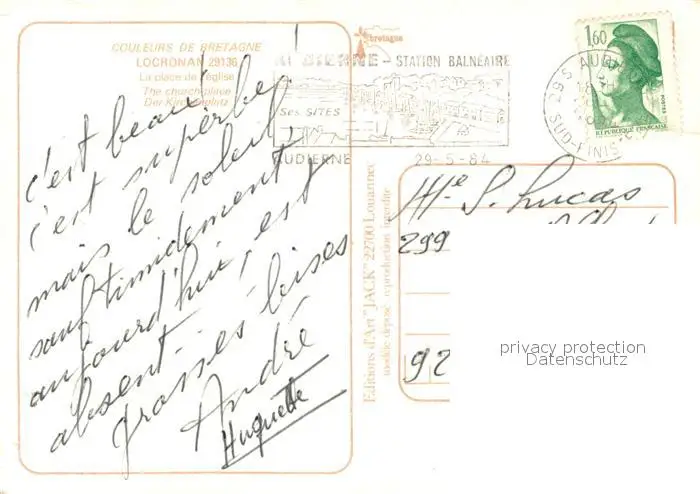 COULEURS DE BRETAGNE
LOCRONAN 29136
La place de l'église
The church place
Der Kirchenplatz
c'est beau!
c'est superbe!
mais le soleil,
sauf timidement
aujourd'hui, est
absent..
grosses bises
André
Huguette
bretagne
AUDIERNE - STATION BALNÉAIRE
Ses SITES
AUDIERNE
29-5-84
1,60
POSTES
REPUBLIQUE FRANÇAISE
29 S AUDI
SUD-FINIS
Editions d'Art "JACK" 22700 Louannec
modèle déposé reproduction interdite
Mle S. Lucas
299
92
privacy protection
Datenschutz